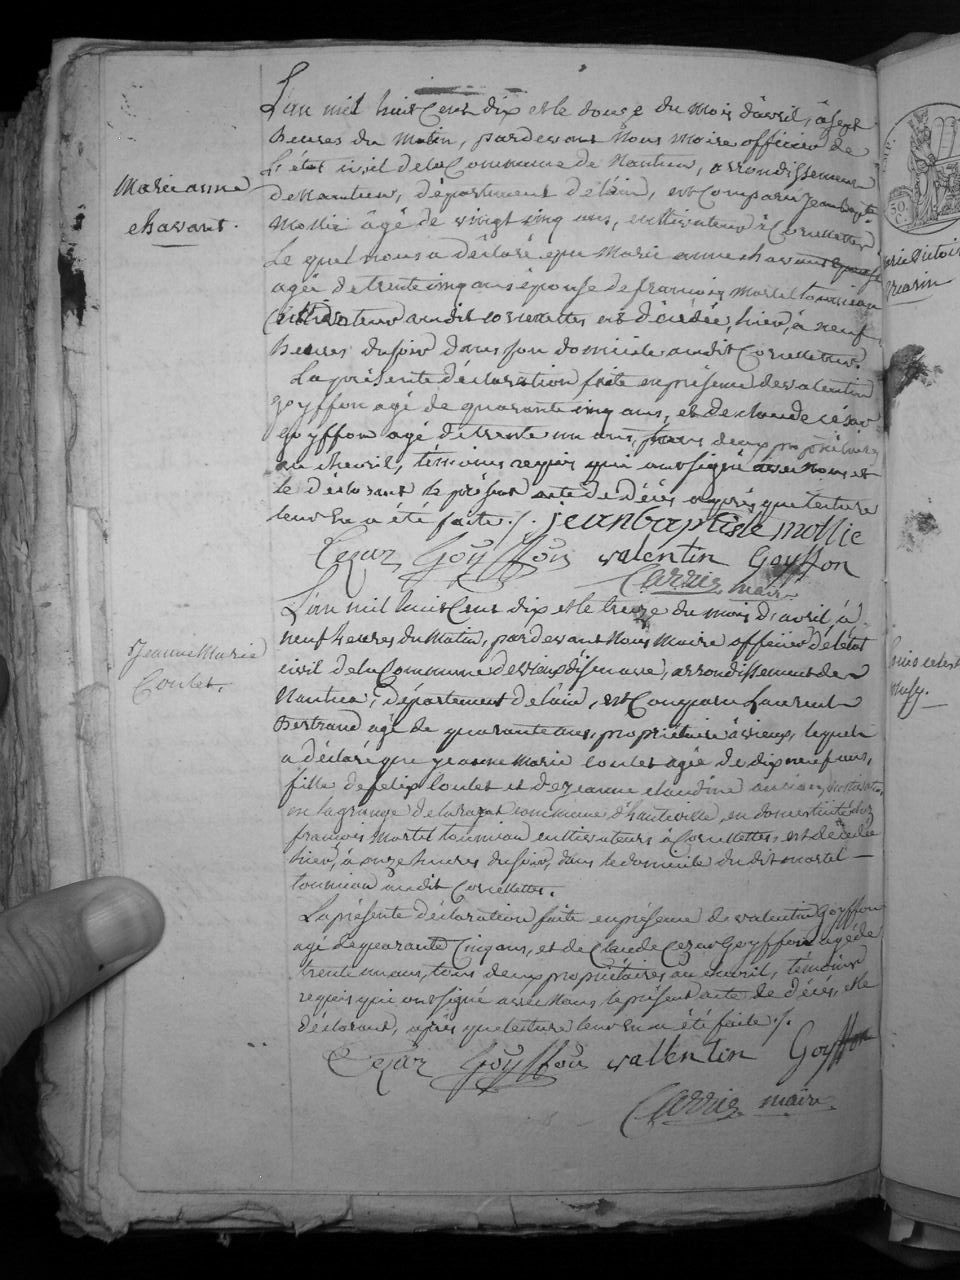 Marie anne
chavant.
L'an mil huit Cent dix et le douze du mois d'avril, à sept
heures du matin, pardevant Nous Maire officier de
L'etat civil de la Commune de nantua, arrondissement
de Nantua, département de l'ain, est Comparu Jean baptiste
Mollie âgé de vingt cinq ans, cultivateur à Corcellettes
Le quel nous a déclaré que Marie anne chavant
agée de trente cinq ans épouse de françois Martel tournian
Cultivateur audit corcelettes est décédée, hier, à neuf
heures du soir dans son domicile audit Corcellettes.
La présente déclaration faite en présence de valentin
goyffon agé de quarante cinq ans, et de claude césar
goyffon agé de trente un ans, tous deux propriétaires
au chevril, témoins requis qui ont signé avec nous et
le déclarant le présent acte de décés après que lecture
leur En a été faite ./. jean baptiste mollie
Cezar Goyffon valentin Goyffon
Carrier maire
Jeanne Marie
Coulet.
L'an mil huit Cent dix et le treize du mois d'avril à
neuf heures du Matin, pardevant Nous Maire officier de l'etat
civil de la Commune de , arrondissement de
Nantua, département de l'ain, est Comparu Laurent
Bertrand agé de quarante ans, propriétaire à vieux, lequel
a déclaré que jeanne Marie coulet agée de dix neuf ans,
fille de felix coulet et de jeanne claudine
en la grange de la commune d'hauteville, en domesticité chez
françois Martel tournian cultivateurs à Corcellettes, est décédée
hier, à onze heures du soir, dans le domicile du dit martel
tournian audit Corcellettes.
La présente déclaration faite en présence de valentin Goyffon
agé de quarante Cinq ans, et de Claude Cezar Goyffon agé de
trente un ans, tous deux propriétaires au chevril, témoins
requis qui ont signé avec Nous, le présent acte de décés, et le
déclarant, après que lecture leur En a été faite ./.
Cezar Goyffon vallentin Goyffon
Carrier maire